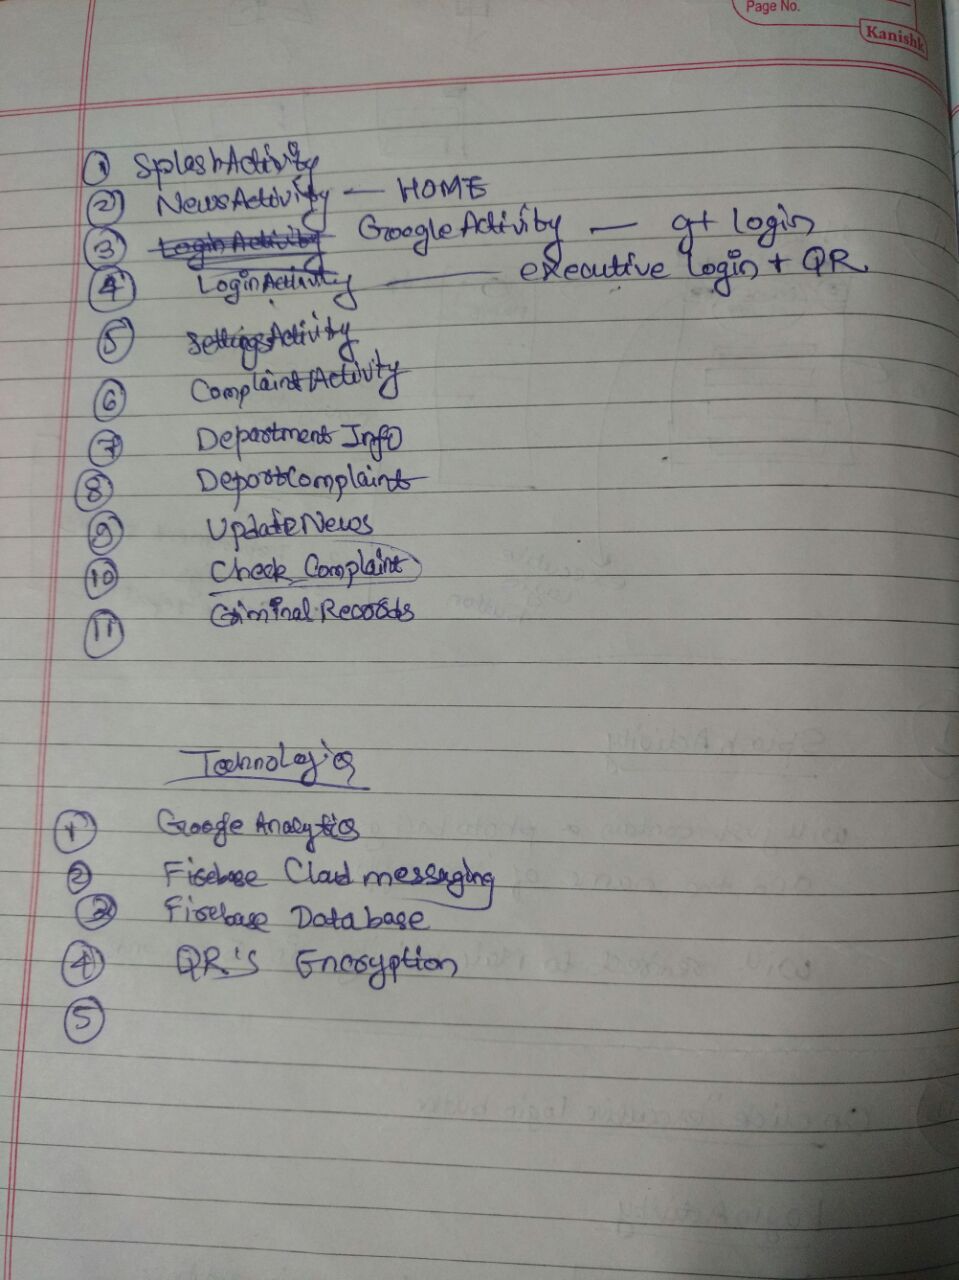 Page No.
Kanishk
① SplashActivity
② NewsActivity — HOME
③ LoginActivity GoogleActivity — g+ login
④ LoginActivity — executive login + QR
⑤ SettingsActivity
⑥ ComplaintActivity
⑦ Department Info
⑧ DeportComplaint
⑨ UpdateNews
⑩ Check Complaint
⑪ Criminal Records
Technologies
① Google Analytics
② Firebase Cloud messaging
③ Firebase Database
④ QR's Encryption
⑤